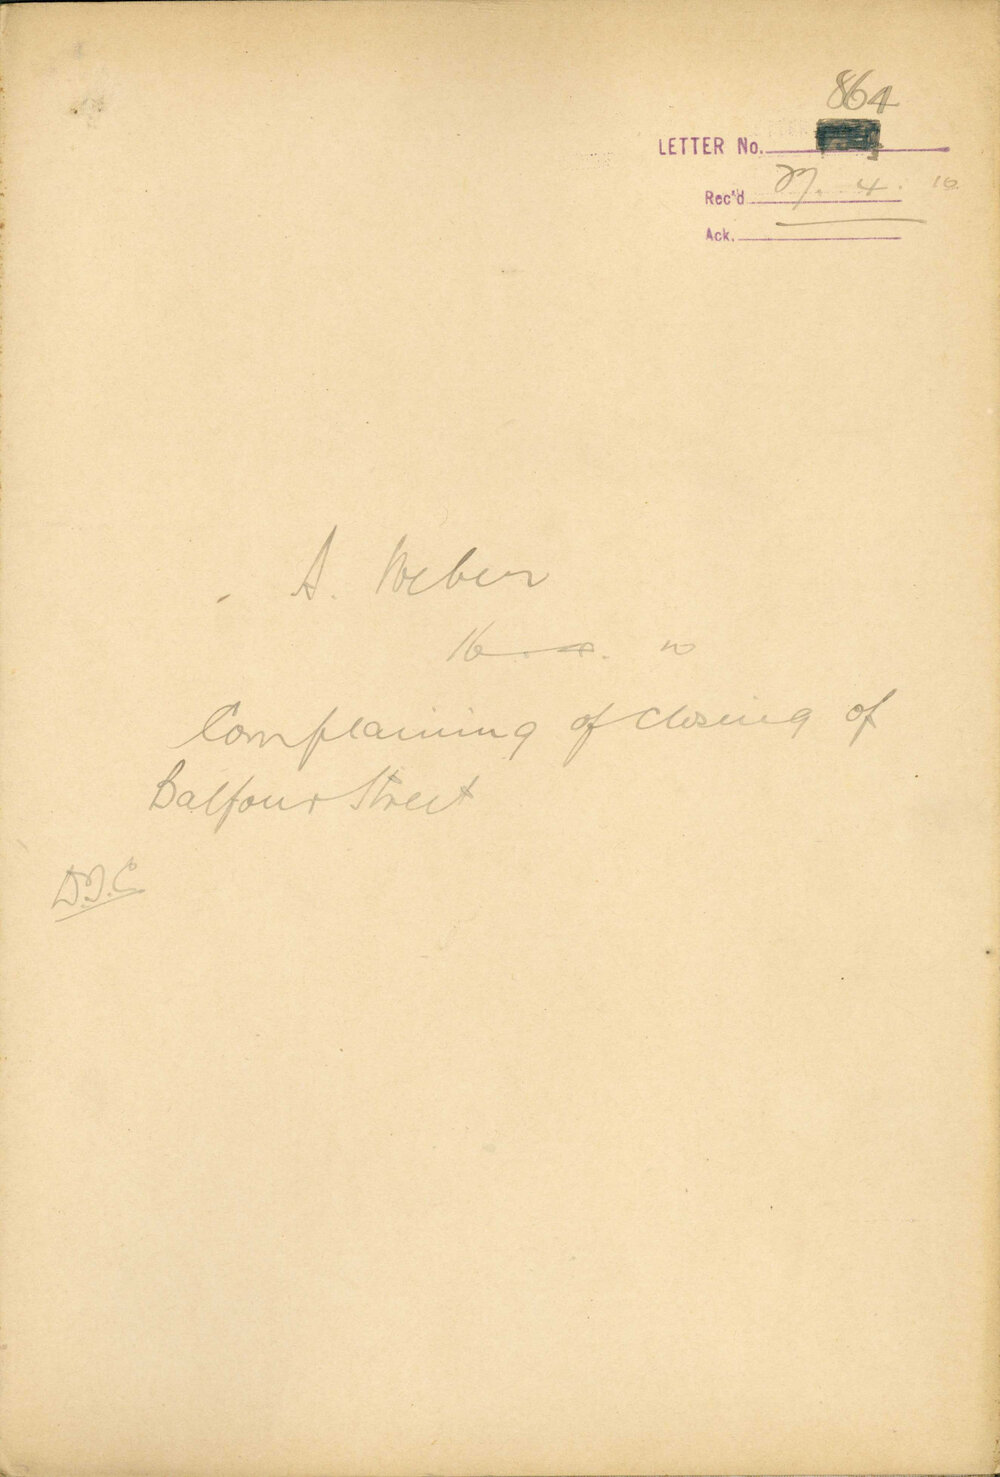 864
LETTER No.
Rec'd 27. 4. 10.
Ack.
A. Weber
16. 4. 10
Complaining of closing of
Balfour Street